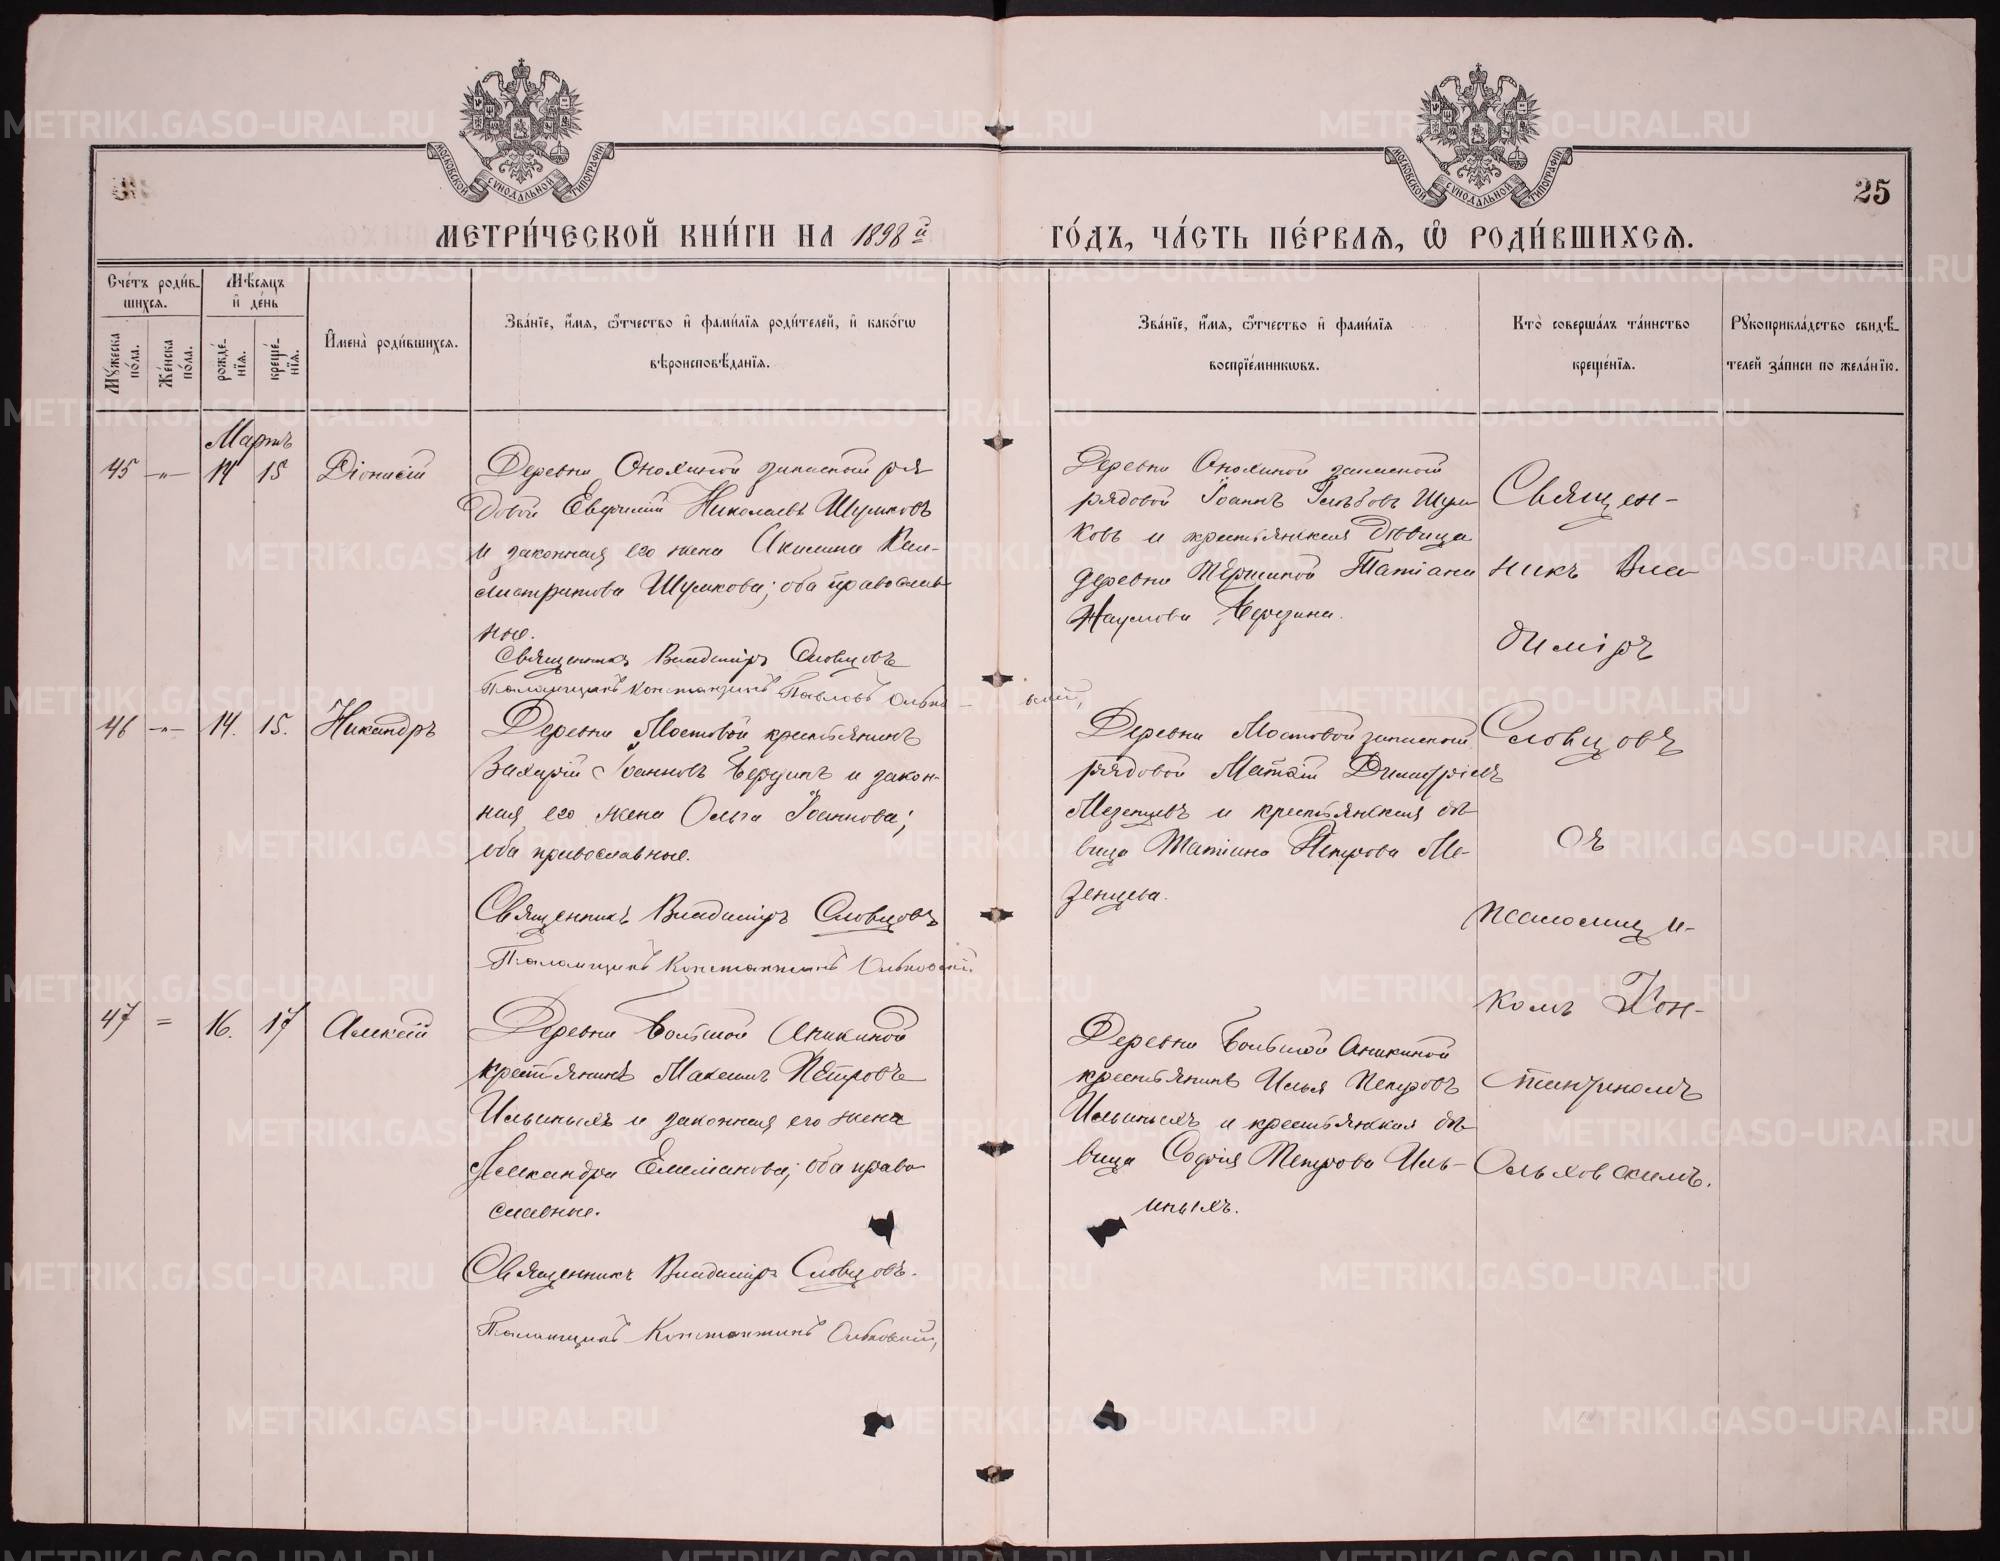 МОСКОВСКОЙ СѴНОДАЛЬНОЙ ТИПОГРАФІИ
МОСКОВСКОЙ СѴНОДАЛЬНОЙ ТИПОГРАФІИ
25
МЕТРИ́ЧЕСКОЙ КНИ́ГИ НА 1898 й ГО́ДЪ, ЧА́СТЬ ПЕ́РВАѦ, Ѡ҆ РОДИ́ВШИХСѦ.
Сче́тъ роди́вшихсѧ.
Мꙋ́жеска по́ла.
Же́нска по́ла.
Мѣ́сѧцъ и҆ де́нь
рожде́нїѧ.
креще́нїѧ.
И҆мена̀ роди́вшихсѧ.
Зва́нїе, и҆́мѧ, ѻ҆́тчество и҆ фами́лїѧ роди́телей, и҆ како́гѡ
вѣроисповѣ́данїѧ.
Зва́нїе, и҆́мѧ, ѻ҆́тчество и҆ фами́лїѧ
воспрїе́мникѡвъ.
Кто̀ соверша́лъ та́инство
креще́нїѧ.
Рꙋкоприкла́дство свидѣ́-
телей за́писи по жела́нїю.
Мартъ
45 —„— 14 15 Діонисій
Деревни Онохиной запасной ря
довой Евфимій Николаевъ Шумковъ
и законная его жена Акилина Кал-
листратова Шумкова; оба православ
ные.
Священникъ Владиміръ Словцовъ
Псаломщикъ Константинъ Павловъ Ольховскій,
Деревни Онохиной запасной
рядовой Іоаннъ Глѣбовъ Шум
ковъ и крестьянская дѣвица
деревни Першиной Татіана
Наумова Берзина.
46 —„— 14. 15. Никандръ
Деревни Мостовой крестьянинъ
Захарій Іоанновъ Берзинъ и закон-
ная его жена Ольга Іоаннова;
оба православные.
Священникъ Владиміръ Словцовъ
Псаломщикъ Константинъ Ольховскій.
Деревни Мостовой запасной
рядовой Матѳій Димитріевъ
Мезенцевъ и крестьянская дѣ
вица Татіана Петрова Ме-
зенцева.
47 = 16. 17 Алексій
Деревни Большой Аникиной
крестьянинъ Максимъ Петровъ
Ильиныхъ и законная его жена
Александра Емелианова; оба право
славные.
Священникъ Владиміръ Словцовъ.
Псаломщикъ Константинъ Ольховскій,
Деревни Большой Аникиной
крестьянинъ Илья Петровъ
Ильиныхъ и крестьянская дѣ
вица Софія Петрова Иль-
иныхъ.
Священ-
никъ Вла
диміръ
Словцовъ
съ
псаломщи-
комъ Кон-
стантиномъ
Ольховскимъ.
METRIKI.GASO-URAL.RU